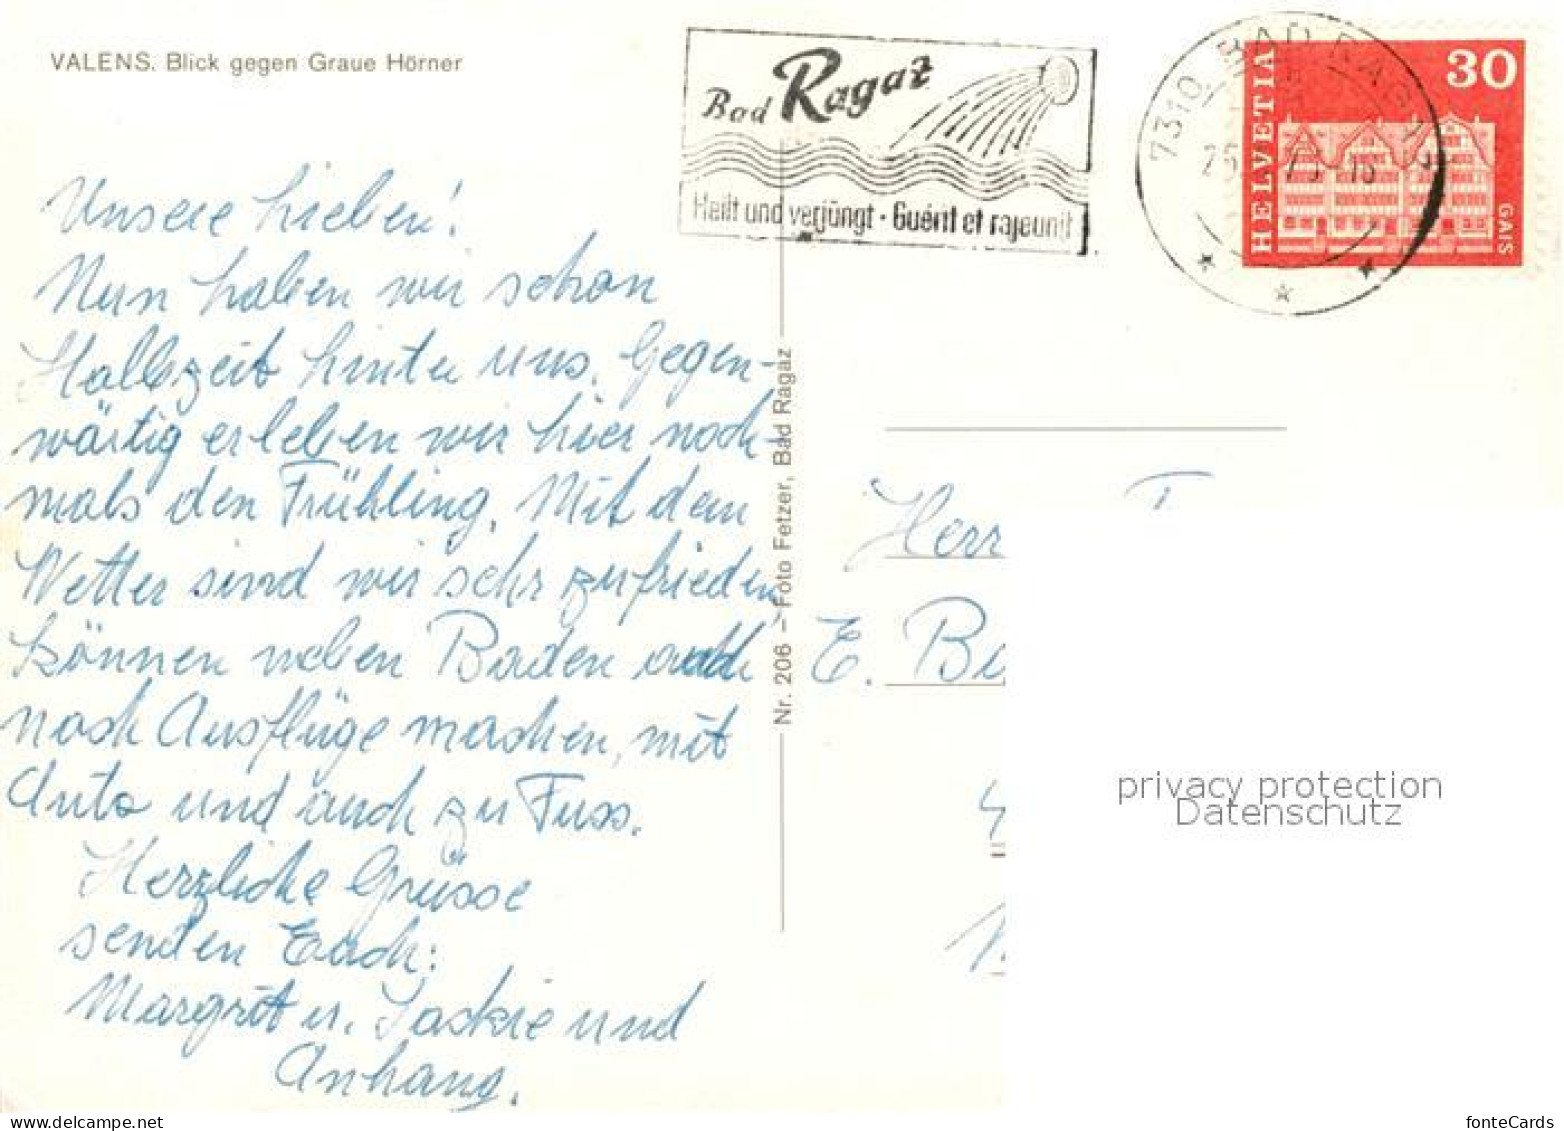 VALENS. Blick gegen Graue Hörner
Bad Ragaz
Heilt und verjüngt · Guérit et rajeunit
7310 BAD RAGAZ
30
HELVETIA
GAIS
Unsere Lieben!
Nun haben wir schon
Halbzeit hinter uns. Gegen-
wärtig erleben wir hier noch-
mals den Frühling. Mit dem
Wetter sind wir sehr zufrieden
können neben Baden auch
noch Ausflüge machen, mit
Auto und auch zu Fuss.
Herzliche Grüsse
senden Euch:
Margrit u. Jackie und
Anhang.
Nr. 206 – Foto Fetzer, Bad Ragaz
Herr
E.
privacy protection
Datenschutz
www.delcampe.net
fonteCards